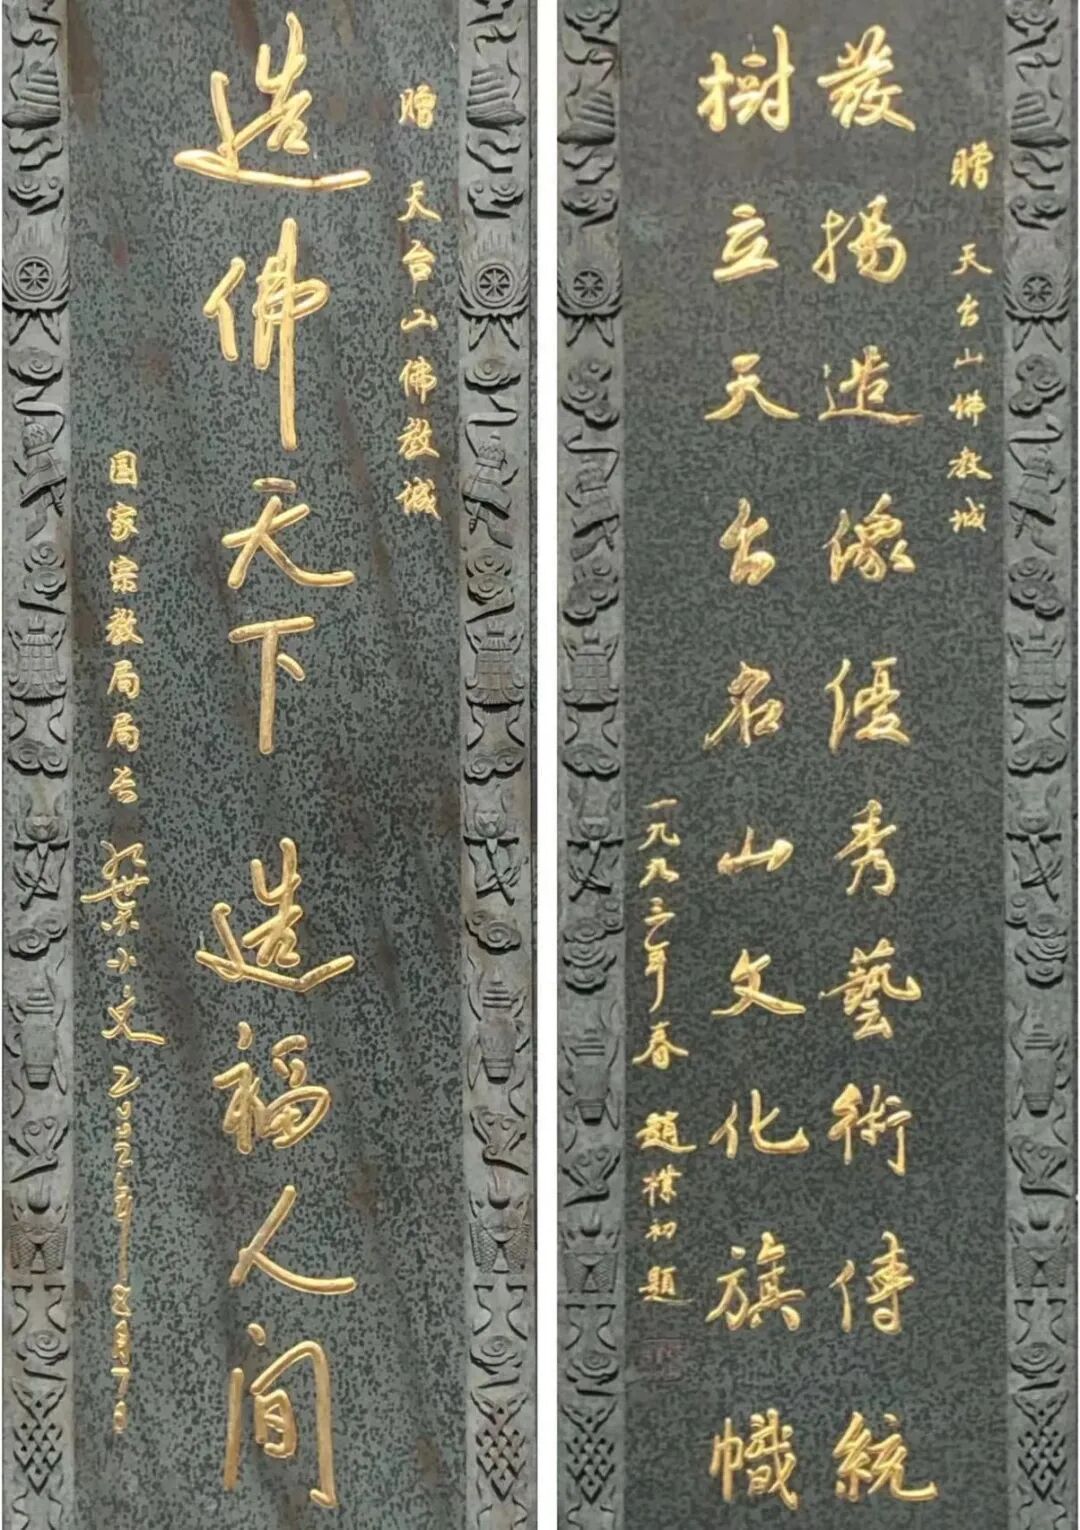 贈 天台山佛教城
造佛天下 造福人间
国家宗教局局长 葉小文 2002年8月10
贈 天台山佛教城
發揚造像優秀藝術傳統
樹立天台名山文化旗幟
一九九三年春 趙樸初題